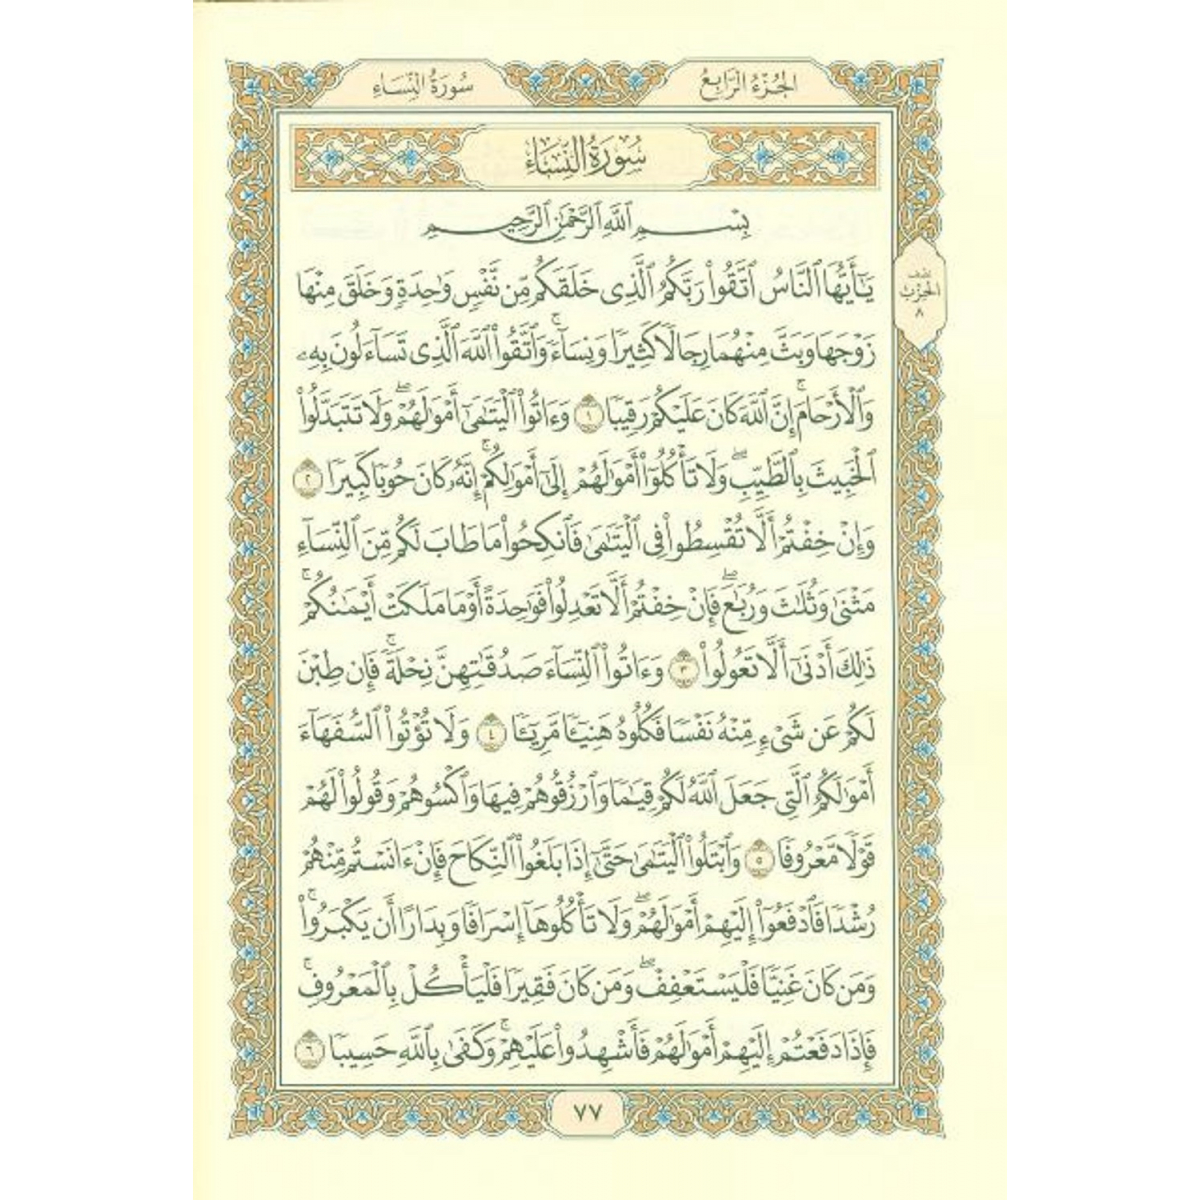 الجُزْءُ الرَّابِعُ
سُورَةُ النِّسَاءِ
سُورَةُ النِّسَاءِ
بِسْمِ ٱللَّهِ ٱلرَّحْمَٰنِ ٱلرَّحِيمِ
يَٰٓأَيُّهَا ٱلنَّاسُ ٱتَّقُوا۟ رَبَّكُمُ ٱلَّذِى خَلَقَكُم مِّن نَّفْسٍ وَٰحِدَةٍ وَخَلَقَ مِنْهَا
زَوْجَهَا وَبَثَّ مِنْهُمَا رِجَالًا كَثِيرًا وَنِسَآءً ۚ وَٱتَّقُوا۟ ٱللَّهَ ٱلَّذِى تَسَآءَلُونَ بِهِۦ
وَٱلْأَرْحَامَ ۚ إِنَّ ٱللَّهَ كَانَ عَلَيْكُمْ رَقِيبًا ١ وَءَاتُوا۟ ٱلْيَتَٰمَىٰٓ أَمْوَٰلَهُمْ ۖ وَلَا تَتَبَدَّلُوا۟
ٱلْخَبِيثَ بِٱلطَّيِّبِ ۖ وَلَا تَأْكُلُوٓا۟ أَمْوَٰلَهُمْ إِلَىٰٓ أَمْوَٰلِكُمْ ۚ إِنَّهُۥ كَانَ حُوبًا كَبِيرًا ٢
وَإِنْ خِفْتُمْ أَلَّا تُقْسِطُوا۟ فِى ٱلْيَتَٰمَىٰ فَٱنكِحُوا۟ مَا طَابَ لَكُم مِّنَ ٱلنِّسَآءِ
مَثْنَىٰ وَثُلَٰثَ وَرُبَٰعَ ۖ فَإِنْ خِفْتُمْ أَلَّا تَعْدِلُوا۟ فَوَٰحِدَةً أَوْ مَا مَلَكَتْ أَيْمَٰنُكُمْ ۚ
ذَٰلِكَ أَدْنَىٰٓ أَلَّا تَعُولُوا۟ ٣ وَءَاتُوا۟ ٱلنِّسَآءَ صَدُقَٰتِهِنَّ نِحْلَةً ۚ فَإِن طِبْنَ
لَكُمْ عَن شَىْءٍ مِّنْهُ نَفْسًا فَكُلُوهُ هَنِيٓـًٔا مَّرِيٓـًٔا ٤ وَلَا تُؤْتُوا۟ ٱلسُّفَهَآءَ
أَمْوَٰلَكُمُ ٱلَّتِى جَعَلَ ٱللَّهُ لَكُمْ قِيَٰمًا وَٱرْزُقُوهُمْ فِيهَا وَٱكْسُوهُمْ وَقُولُوا۟ لَهُمْ
قَوْلًا مَّعْرُوفًا ٥ وَٱبْتَلُوا۟ ٱلْيَتَٰمَىٰ حَتَّىٰٓ إِذَا بَلَغُوا۟ ٱلنِّكَاحَ فَإِنْ ءَانَسْتُم مِّنْهُمْ
رُشْدًا فَٱدْفَعُوٓا۟ إِلَيْهِمْ أَمْوَٰلَهُمْ ۖ وَلَا تَأْكُلُوهَآ إِسْرَافًا وَبِدَارًا أَن يَكْبَرُوا۟ ۚ
وَمَن كَانَ غَنِيًّا فَلْيَسْتَعْفِفْ ۖ وَمَن كَانَ فَقِيرًا فَلْيَأْكُلْ بِٱلْمَعْرُوفِ ۚ
فَإِذَا دَفَعْتُمْ إِلَيْهِمْ أَمْوَٰلَهُمْ فَأَشْهِدُوا۟ عَلَيْهِمْ ۚ وَكَفَىٰ بِٱللَّهِ حَسِيبًا ٦
نِصْف
الحِزْبِ
٨
٧٧